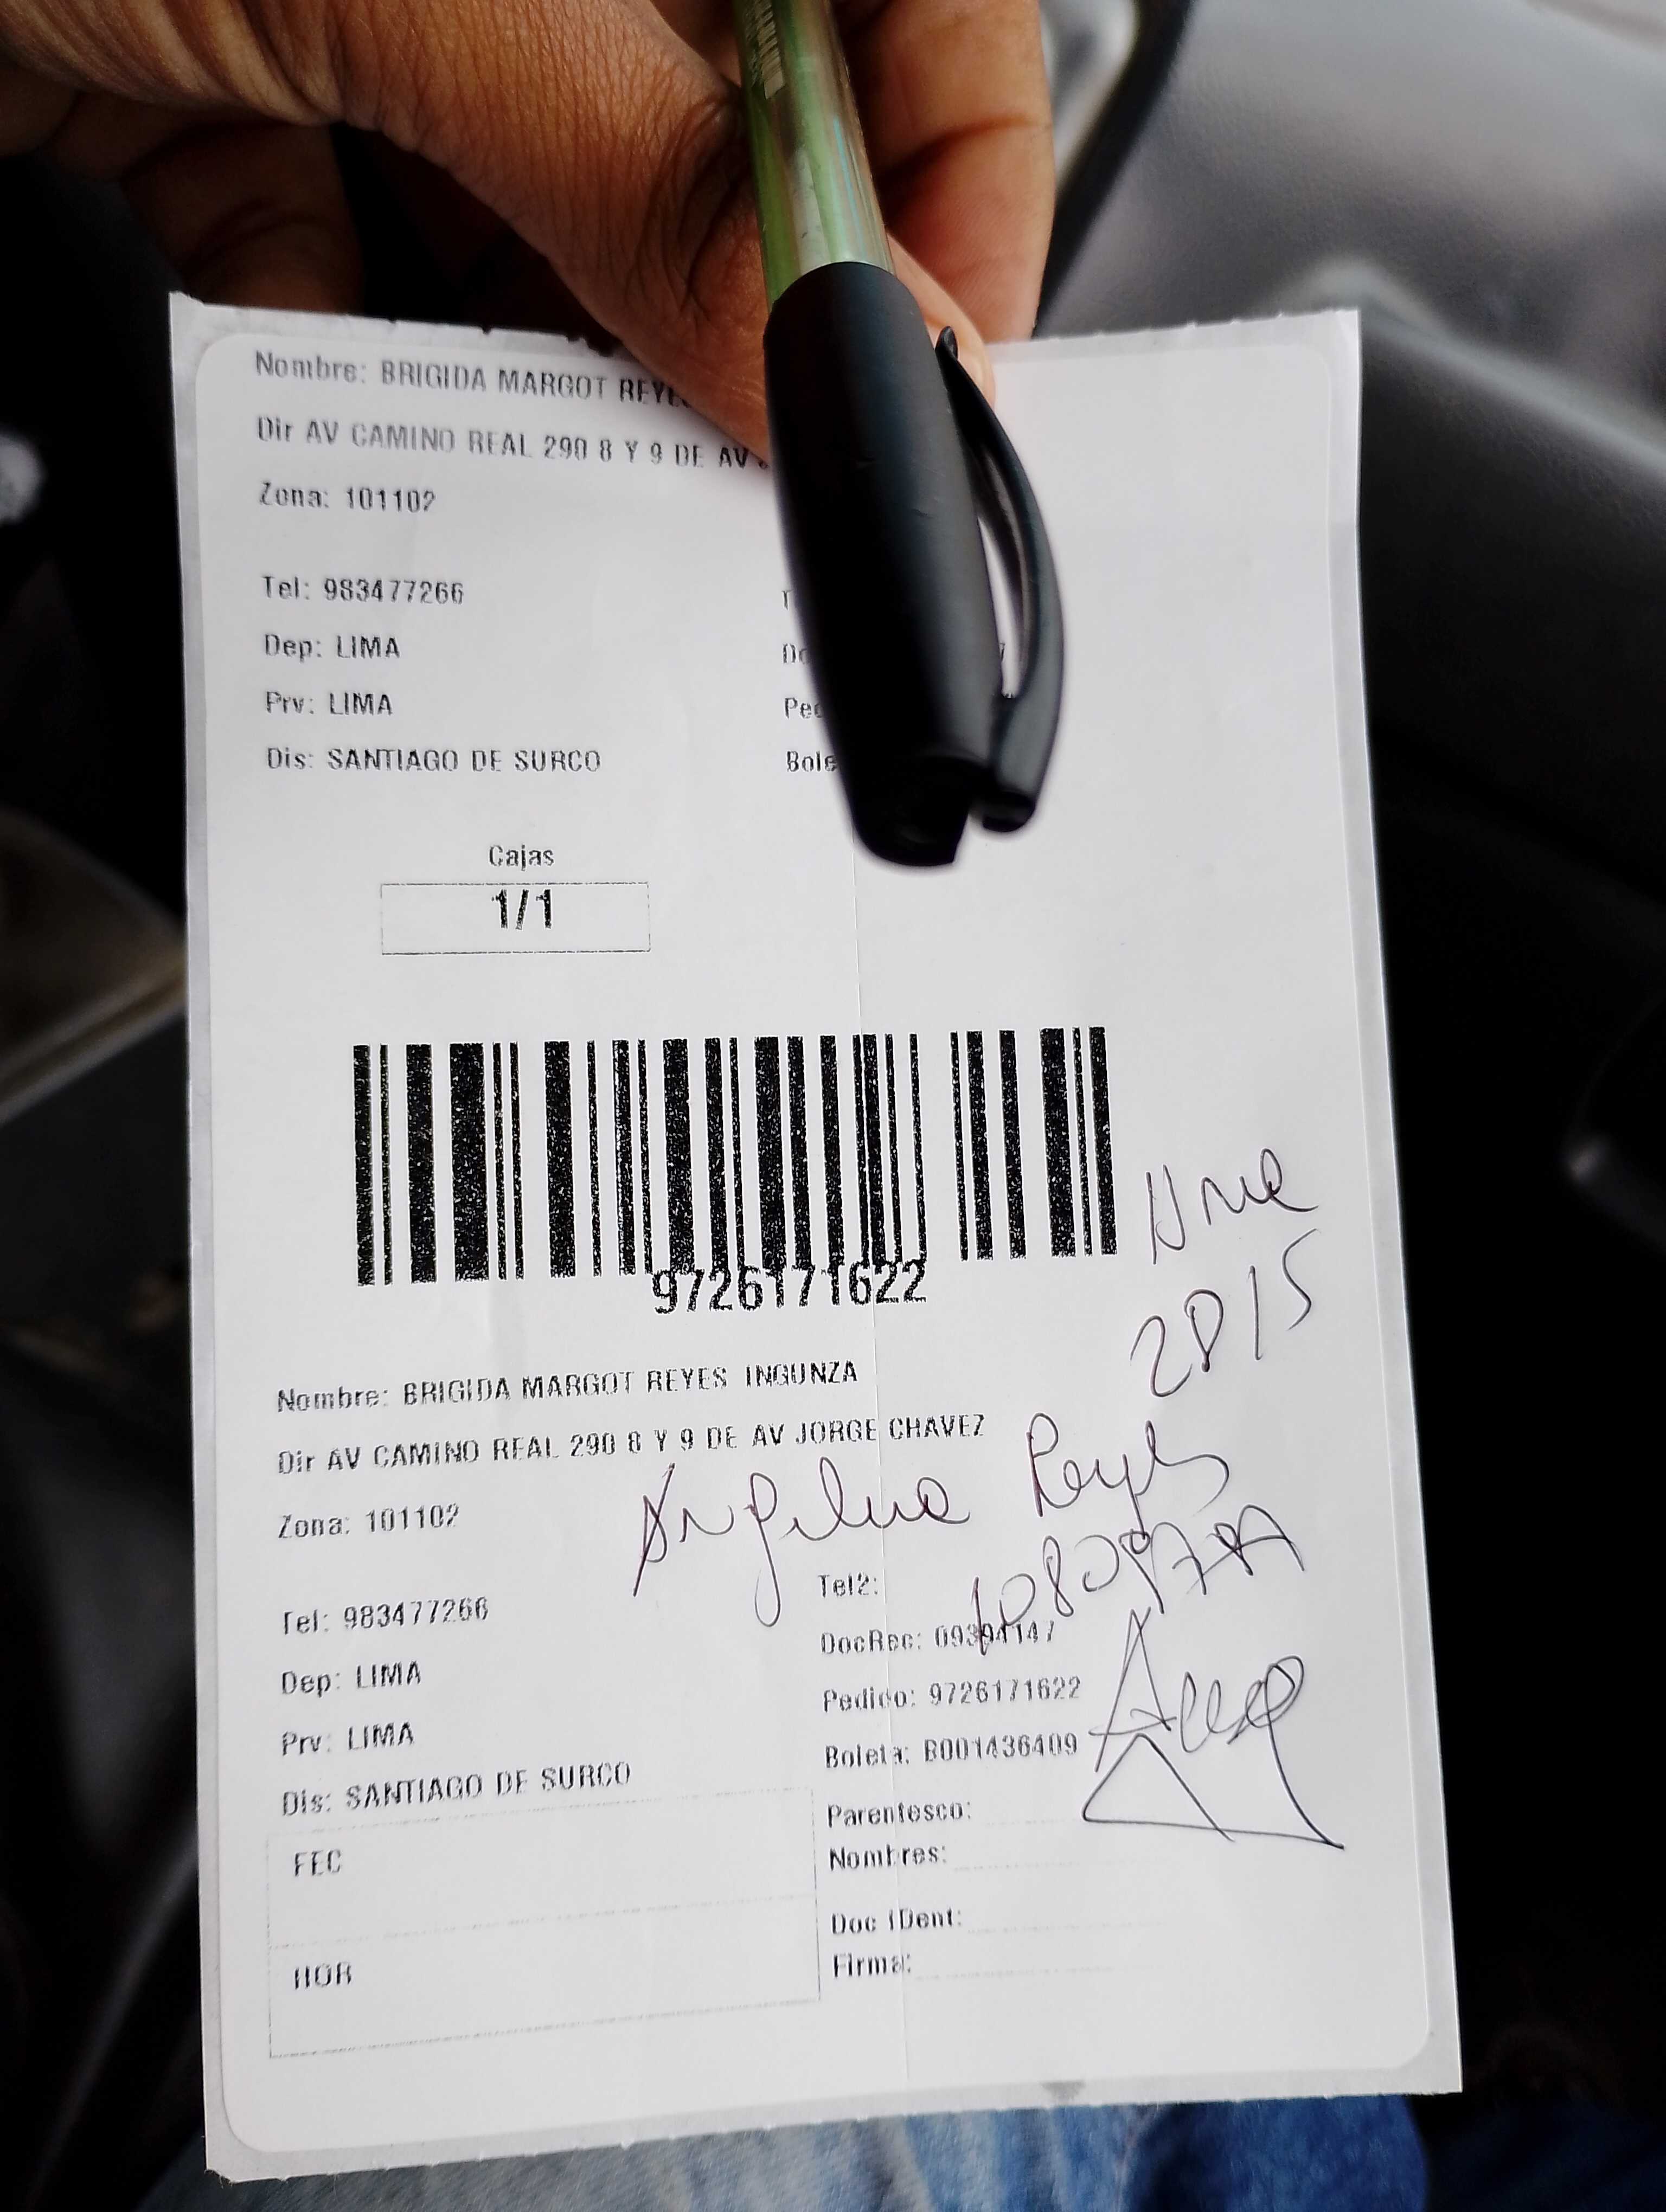 Nombre: BRIGIDA MARGOT REYE
Dir AV CAMINO REAL 290 8 Y 9 DE AV
Zona: 101102
Tel: 983477266
Dep: LIMA
Prv: LIMA
Dis: SANTIAGO DE SURCO
Bole
Cajas
1/1
9726171622
2015
Nombre: BRIGIDA MARGOT REYES INGUNZA
Dir AV CAMINO REAL 290 8 Y 9 DE AV JORGE CHAVEZ
Reyes
Zona: 101102
Tel: 983477266
Tel2:
Dep: LIMA
DocRec: 09394147
Prv: LIMA
Pedido: 9726171622
Dis: SANTIAGO DE SURCO
Boleta: B001436409
FEC
Parentesco:
Nombres:
HOR
Doc IDent:
Firma: